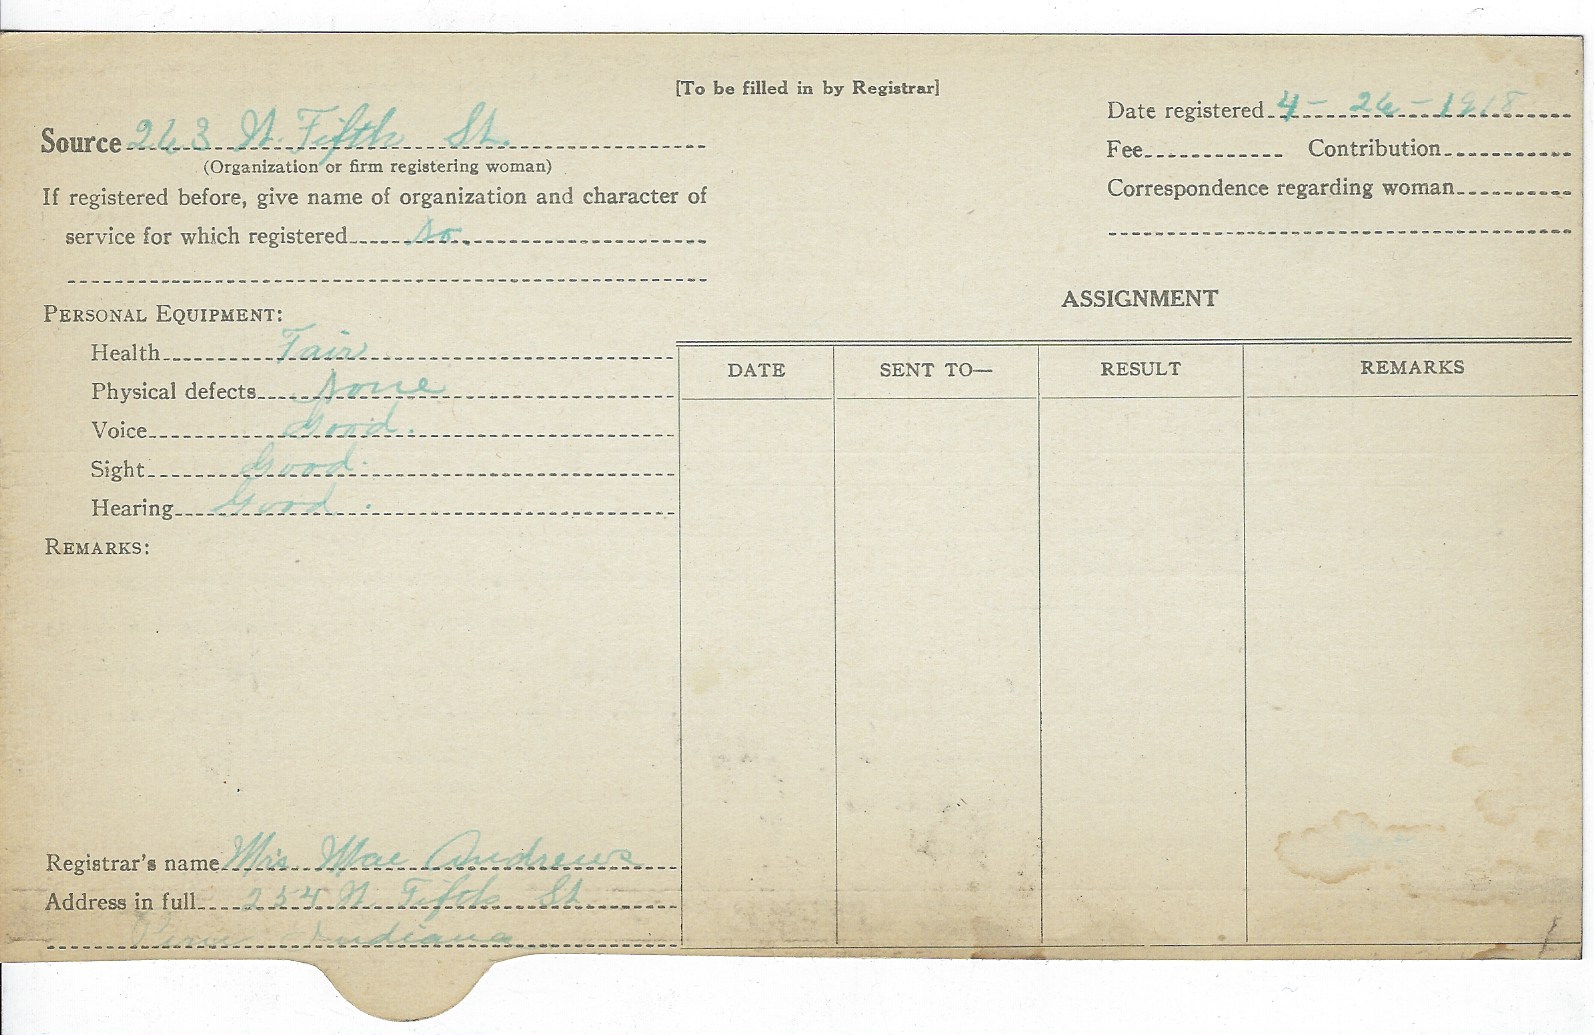 [To be filled in by Registrar]
Source 263 W. Fifth St.
(Organization or firm registering woman)
If registered before, give name of organization and character of
service for which registered No.
Date registered 4-26-1918
Fee Contribution
Correspondence regarding woman
PERSONAL EQUIPMENT:
Health Fair
Physical defects None
Voice Good.
Sight Good.
Hearing Good.
REMARKS:
ASSIGNMENT
DATE SENT TO— RESULT REMARKS
Registrar's name Mrs. Mae Andrews
Address in full 254 W. Fifth St.
Peru Indiana